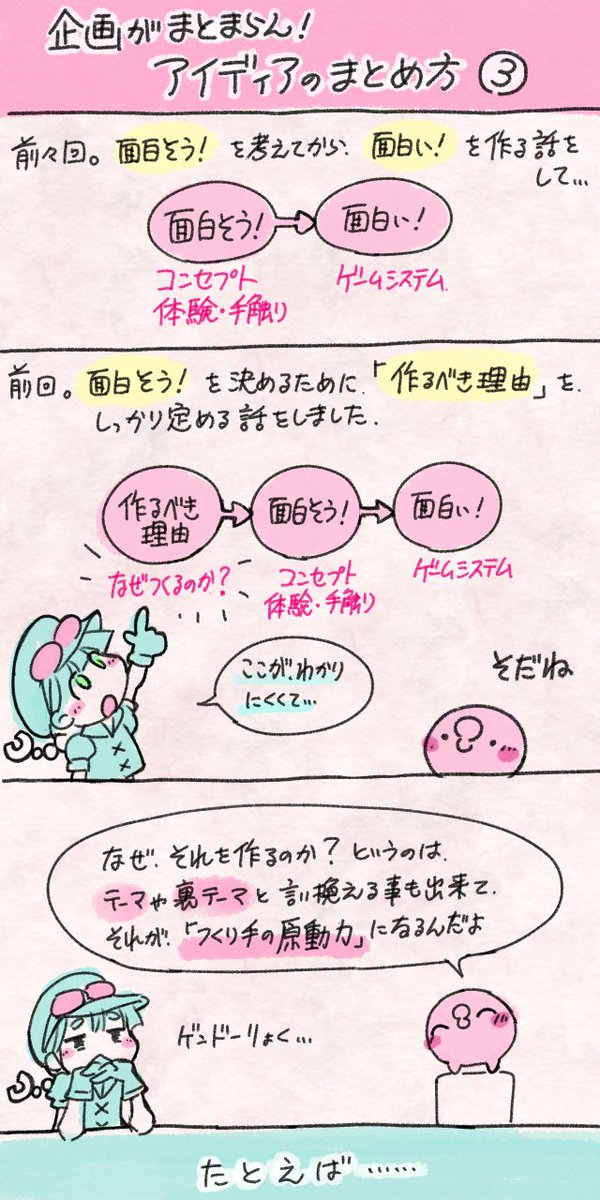 企画がまとまらん!
アイディアのまとめ方 ③
前々回。面白そう!を考えてから、面白い!を作る話を
して…
面白そう!
面白い!
コンセプト
体験・手触り
ゲームシステム
前回。面白そう!を決めるために、「作るべき理由」を、
しっかり定める話をしました。
作るべき
理由
面白そう!
面白い!
なぜつくるのか?
コンセプト
体験・手触り
ゲームシステム
ここが、わかり
にくくて…
そだね
なぜ、それを作るのか?というのは、
テーマや裏テーマと言い換える事も出来て、
それが、「つくり手の原動力」になるんだよ
ゲンドーりょく…
たとえば……